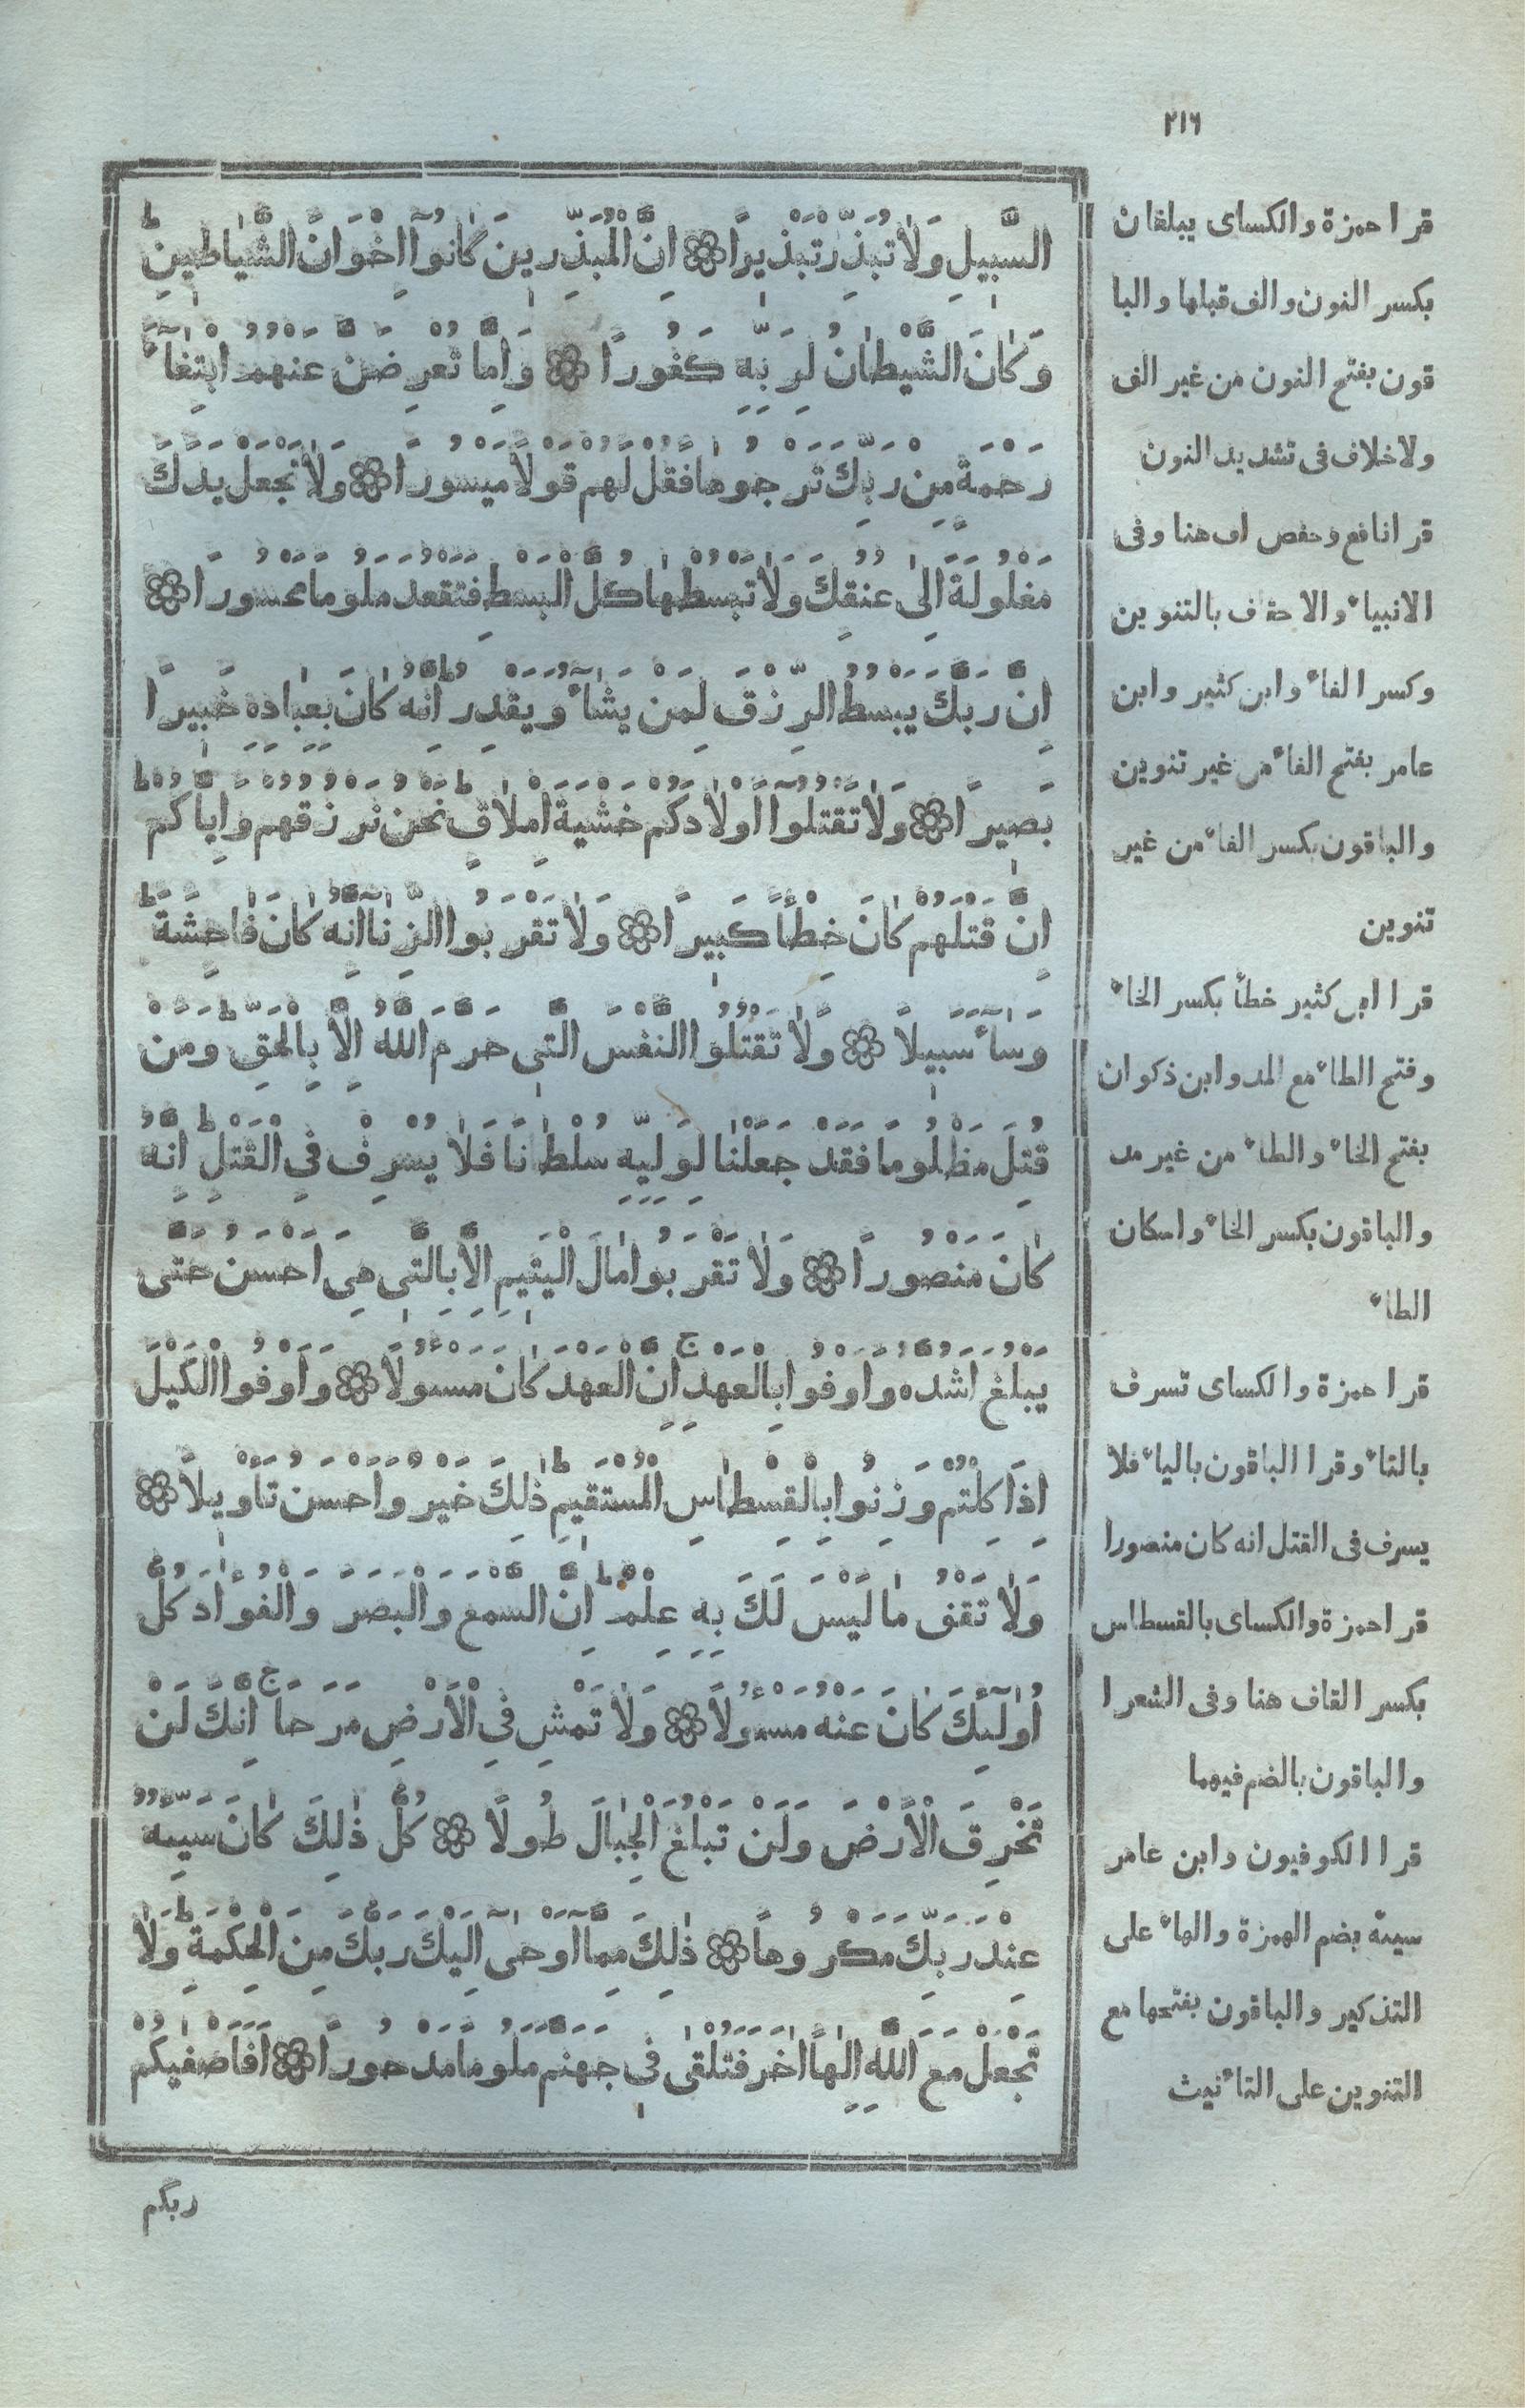 ٢١٦
السَّبِيلِ وَلاٰ تُبَذِّرْ تَبْذِيرًا ۞ اِنَّ الْمُبَذِّرِينَ كٰانُوٓا اِخْوَانَ الشَّيٰاطِينِ ط
وَكٰانَ الشَّيْطٰانُ لِرَبِّهِ كَفُورًا ۞ وَاِمّٰا تُعْرِضَنَّ عَنْهُمُ ابْتِغٰآءَ
رَحْمَةٍ مِنْ رَبِّكَ تَرْجُوهٰا فَقُلْ لَهُمْ قَوْلًا مَيْسُورًا ۞ وَلاٰ تَجْعَلْ يَدَكَ
مَغْلُولَةً اِلٰى عُنُقِكَ وَلاٰ تَبْسُطْهٰا كُلَّ الْبَسْطِ فَتَقْعُدَ مَلُومًا مَحْسُورًا ۞
اِنَّ رَبَّكَ يَبْسُطُ الرِّزْقَ لِمَنْ يَشٰآءُ وَيَقْدِرُ ط اِنَّهُ كٰانَ بِعِبٰادِهِ خَبِيرًا
بَصِيرًا ۞ وَلاٰ تَقْتُلُوٓا اَوْلاٰدَكُمْ خَشْيَةَ اِمْلاٰقٍ ط نَحْنُ نَرْزُقُهُمْ وَاِيّٰاكُمْ ط
اِنَّ قَتْلَهُمْ كٰانَ خِطْأً كَبِيرًا ۞ وَلاٰ تَقْرَبُوا الزِّنٰٓا اِنَّهُ كٰانَ فٰاحِشَةً ط
وَسٰآءَ سَبِيلاً ۞ وَلاٰ تَقْتُلُوا النَّفْسَ الَّتِى حَرَّمَ اللّٰهُ اِلاَّ بِالْحَقِّ ط وَمَنْ
قُتِلَ مَظْلُومًا فَقَدْ جَعَلْنٰا لِوَلِيِّهِ سُلْطٰانًا فَلاٰ يُسْرِفْ فِى الْقَتْلِ ط اِنَّهُ
كٰانَ مَنْصُورًا ۞ وَلاٰ تَقْرَبُوا مٰالَ الْيَتِيمِ اِلاَّ بِالَّتِى هِىَ اَحْسَنُ حَتّٰى
يَبْلُغَ اَشُدَّهُ وَاَوْفُوا بِالْعَهْدِ ج اِنَّ الْعَهْدَ كٰانَ مَسْءُولًا ۞ وَاَوْفُوا الْكَيْلَ
اِذَا كِلْتُمْ وَزِنُوا بِالْقِسْطٰاسِ الْمُسْتَقِيمِ ط ذٰلِكَ خَيْرٌ وَاَحْسَنُ تَأْوِيلاً ۞
وَلاٰ تَقْفُ مٰا لَيْسَ لَكَ بِهِ عِلْمٌ ط اِنَّ السَّمْعَ وَالْبَصَرَ وَالْفُؤٰادَ كُلُّ
اُولٰٓئِكَ كٰانَ عَنْهُ مَسْءُولًا ۞ وَلاٰ تَمْشِ فِى الْاَرْضِ مَرَحًا ج اِنَّكَ لَنْ
تَخْرِقَ الْاَرْضَ وَلَنْ تَبْلُغَ الْجِبٰالَ طُولًا ۞ كُلُّ ذٰلِكَ كٰانَ سَيِّئُهُ
عِنْدَ رَبِّكَ مَكْرُوهًا ۞ ذٰلِكَ مِمَّآ اَوْحٰىٓ اِلَيْكَ رَبُّكَ مِنَ الْحِكْمَةِ ط وَلاٰ
تَجْعَلْ مَعَ اللّٰهِ اِلٰهًا اٰخَرَ فَتُلْقٰى فِى جَهَنَّمَ مَلُومًا مَدْحُورًا ۞ اَفَاَصْفٰيكُمْ
ربكم
قرا حمزة والكساى يبلغان
بكسر النون والف قبلها والبا
قون بفتح النون من غير الف
ولا خلاف فى تشديد النون
قرا نافع وحفص اف هنا وفى
الانبياء والاحقاف بالتنوين
وكسر الفاء وابن كثير وابن
عامر بفتح الفاء من غير تنوين
والباقون بكسر الفاء من غير
تنوين
قرا ابن كثير خطأ بكسر الخاء
وفتح الطاء مع المد وابن ذكوان
بفتح الخاء والطاء من غير مد
والباقون بكسر الخاء واسكان
الطاء
قرا حمزة والكساى تسرف
بالتاء وقرا الباقون بالياء فلا
يسرف فى القتل انه كان منصورا
قرا حمزة والكساى بالقسطاس
بكسر القاف هنا وفى الشعرا
والباقون بالضم فيهما
قرا الكوفيون وابن عامر
سيئه بضم الهمزة والهاء على
التذكير والباقون بفتحها مع
التنوين على التاءنيث